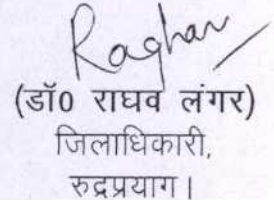 Raghav
(डॉ0 राघव लंगर)
जिलाधिकारी,
रुद्रप्रयाग।